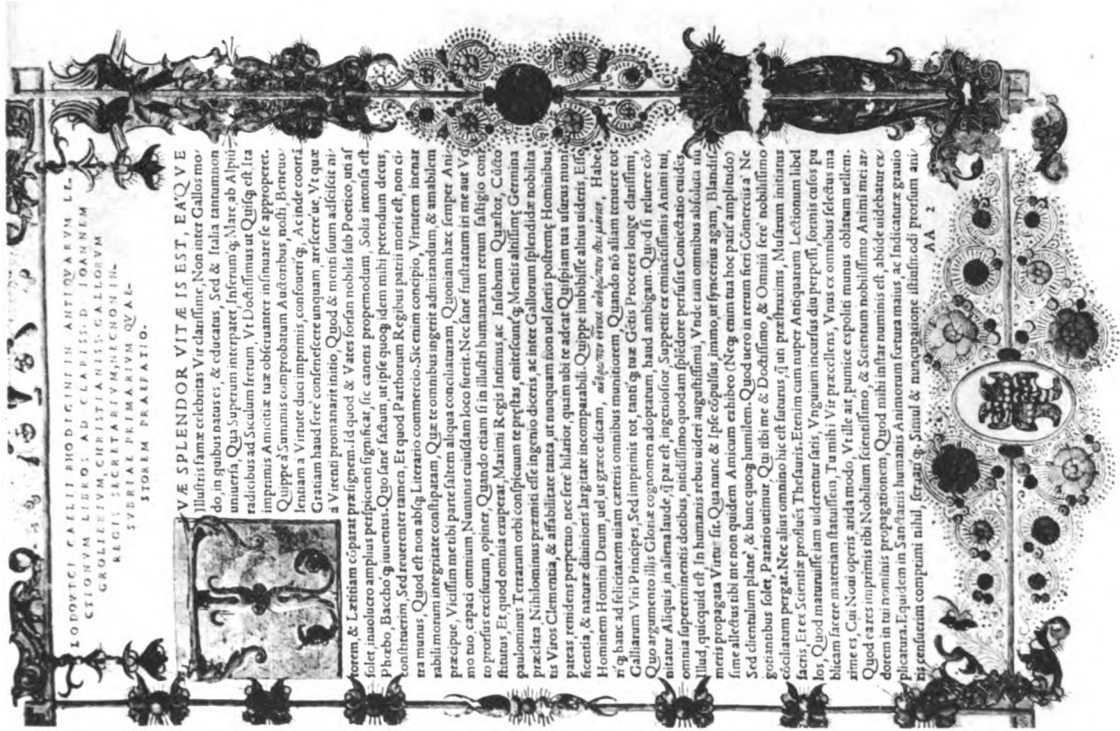 LODOVICI CAELII RHODIGINI IN ANTIQVARVM LE-
CTIONVM LIBROS AD CLARISS. D. IOANEM
GROLIERIVM, CHRISTIANISS. GALLORVM
REGIS SECRETARIVM, NEC NON IN-
SVBRIAE PRIMARIVM QVAE-
STOREM PRAEFATIO.
VÆ SPLENDOR VITÆ IS EST, EAQVE
Illuſtris famæ celebritas Vir clariſſime, Non inter Gallos mo
do, in quibus natus es, & educatus, Sed & Italia tantumnon
uniuerſa, Qua Superum interpatet, Inferumq; Mare ab Alpiū
radicibus ad Siculum fretum, Vt Doctiſſimus ut Quiſq; eſt, Ita
imprimis Amicitiæ tuæ obſeruanter inſinuare ſe approperet.
Quippe a' Summis comprobatum Auctoribus noſti, Beneuo
lentiam a Virtute duci imprimis, confoueriq;, Ac inde coortā
Gratiam haud fere' conſeneſcere unquam, arſcere' ue, Vt quæ
á Virenti promanarit initio, Quod & menti ſuum adſciſcit ni
torem, & Lætitiam cōparat præſignem. id quod & Vates forſan nobilis ſub Poetico, uti aſ
ſolet, inuolucro amplius perſpicienti ſignificat, ſic canens propemodum, Solis intonſa eſt
Phœbo, Bacchoq; iuuentus. Quo ſane' factum, ut ipſe quoq; idem mihi petendum decus,
conſtruerim, Sed reuerenter tamen, Et quod Parthorum Regibus patrii moris eſt, non ci
tra munus, Quod eſt non abſq; Literario commercio. Sic enim concipio, Virtutem inenar
rabili morum integritate conſtipatam, Quæ te omnibus ingerit admirandum, & amabilem
præcipue, Viciſſim me tibi parte ſaltem aliqua conciliaturam, Quoniam hæc ſemper Ani
mo tuo capaci omnium Numinis cuiuſdam loco fuerit. Nec ſane fruſtratum iri me aut Vo
to prorſus exciſurum, opiner, Quando etiam ſi in illuſtri humanarum rerum faſtigio conſ
ſtitutus, Et quod omnia exuperat, Maximi Regis Intimus, ac Inſubrum Quæſtor, Cūcto
paulominus Terrarum orbi conſpicuum te præſtas, eniteſcuntq; Mentis altiſſimę Germina
præclara, Nihilominus præmiti eſſe ingenio diceris, ac inter Gallorum ſplendidæ nobilita
tis Viros Clementia, & affabilitate tanta, ut nunquam non uel ſortis poſtremę Hominibus
pateas, renidens perpetuo, nec fere' hilarior, quam ubi te adeat Quiſpiam tua uſurus muni
ficentia, & naturæ diuinioris largitate incomparabili. Quippe imbibiſſe altius uideris, Eſſe
Hominem Homini Deum, uel, ut græce dicam, Habe
riq; hanc ad felicitatem uiam cæteris omnibus munitiorem, Quando nō aliam tenuere tot
Galliarum Viri Principes, Sed imprimis tot, tantiq; tuæ Gētis Proceres longe clariſſimi,
Quo argumento illis Gloriæ cognomen adoptatum, haud ambigam. Quod ſi reluere cō
nitatur Aliquis, in aliena laude, q̄ par eſt, ingenioſior, Suppetit ex eminentiſſimis Animi tui,
omnia ſupereminentis dotibus, nitidiſſimo quodam ſplēdore perfuſis Coniectatio euidēs,
Illud, quicquid eſt, In humanis rebus uideri auguſtiſſimū, Vnde tam abſoluta nu
meris propagata Virtus ſit. Qua nunc & Ipſe cōpulſus immo, ut ſyncerius agam, Blandiſ
ſime allectus tibi me non quidem Amicum exhibeo (Neq; enim tua hoc patiť amplitudo)
Sed clientulum plane', & hunc quoq; humilem. Quod uero in rerum fieri Cōmerciis a' Ne
gotiantibus ſolet, Parario utimur, Qui tibi me & Doctiſſimo & Omniū fere' nobiliſſimo
cōciliatum pergat. Nec alius omnino hic eſt futurus, q̄ uti præſtruximus, Muſarum initiatus
ſacris, Et ex Scientiæ profluēs Theſauris. Etenim cum nuper Antiquarum Lectionum libel
los, Quod maturuiſſe iam uiderentur ſatis, Vnguium incurſus diu perpeſſi, formis cuſos pu
blicam facere materiam ſtatuiſſem, Tu mihi Vir præcellens Vnus ex omnibus ſelectus ma
xime es, Cui Noui operis, arida modo Vt ille ait, pumice expoliti munus oblatum uellem.
Quod ea res imprimis tibi Nobilium ſcientiſſimo, & Scientum nobiliſſimo Animi mei ar
dorem in tui nominis propagationem, Quod mihi inſtar numinis eſt, abūde uidebatur ex
plicatura. Equidem in Sanctianis humanis Animorum fœtura maius, ac Indicaturæ grauio
ris cenſuerim comperiri nihil, ferariq; Simul & nuncupatione illuſtrandi profuſum
AA 2